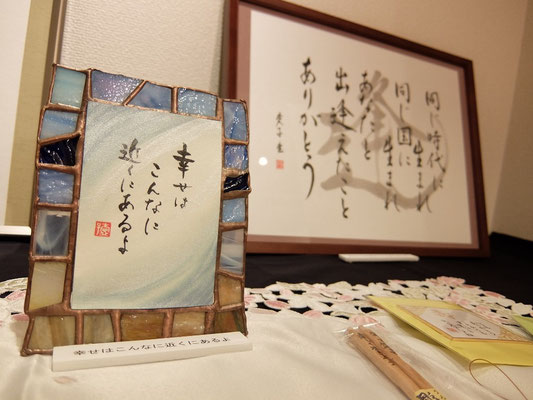 幸せは
こんなに
近くにあるよ
幸せはこんなに近くにあるよ
同じ時代に
生まれ
同じ国に
生まれ
あなたと
出逢えたこと
ありがとう